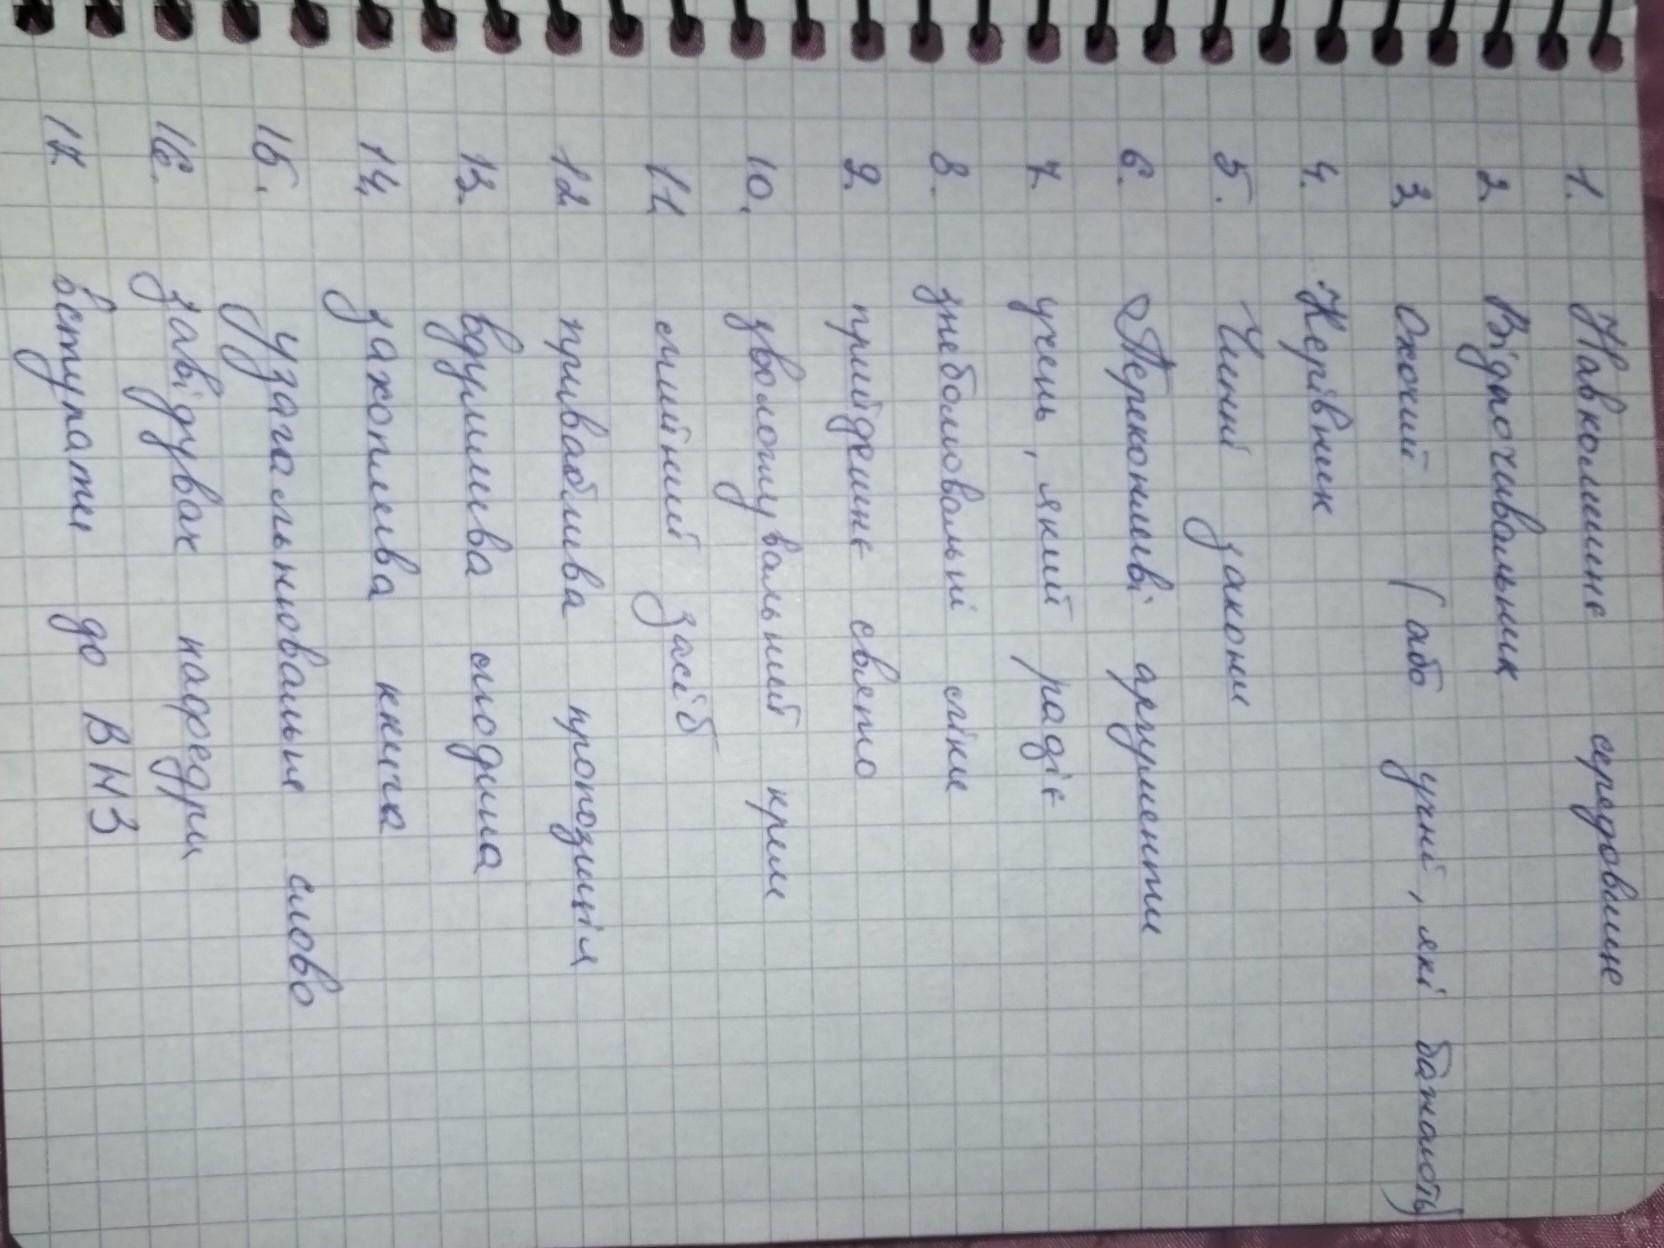 1. Навколишнє середовище
2. Відпочивальник
3. Охочий (або учні, які бажають)
4. Керівник
5. Чинні закони
6. Переконливі аргументи
7. учень, який радіє
8. знеболювальні ліки
9. прийдешнє свято
10. зволожувальний крем
11. мийний засіб
12. приваблива пропозиція
13. вдумлива людина
14. захоплива книга
15. узагальнювальне слово
16. завідувач кафедри
17. вступати до ВНЗ